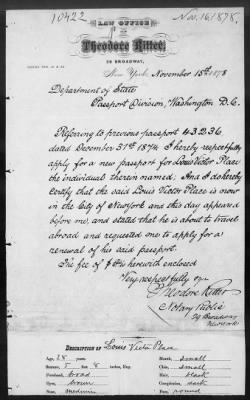 10422
Nov. 16. 1878.
LAW OFFICE
OF
Theodore Ritter,
BROADWAY,
New York, November 15th 1878
Department of State
Passport Division, Washington D.C.
Referring to previous passport 43236
dated December 31st 1874 I hereby respectfully
apply for a new passport for Louis Victor Place
the individual therein named. And I do hereby
certify that the said Louis Victor Place is now
in the City of New York and this day appeared
before me, and stated that he is about to travel
abroad and requested me to apply for a
renewal of his said passport.
The fee of $ is herewith enclosed
Very respectfully
Theodore Ritter
Notary Public
Broadway
New York
DESCRIPTION OF Louis Victor Place
Age, 28 years
Mouth, small
Stature, 5 feet 8 inches, Eng.
Chin, small
Forehead, broad
Hair, black
Eyes, brown
Complexion, dark
Nose, medium
Face, round